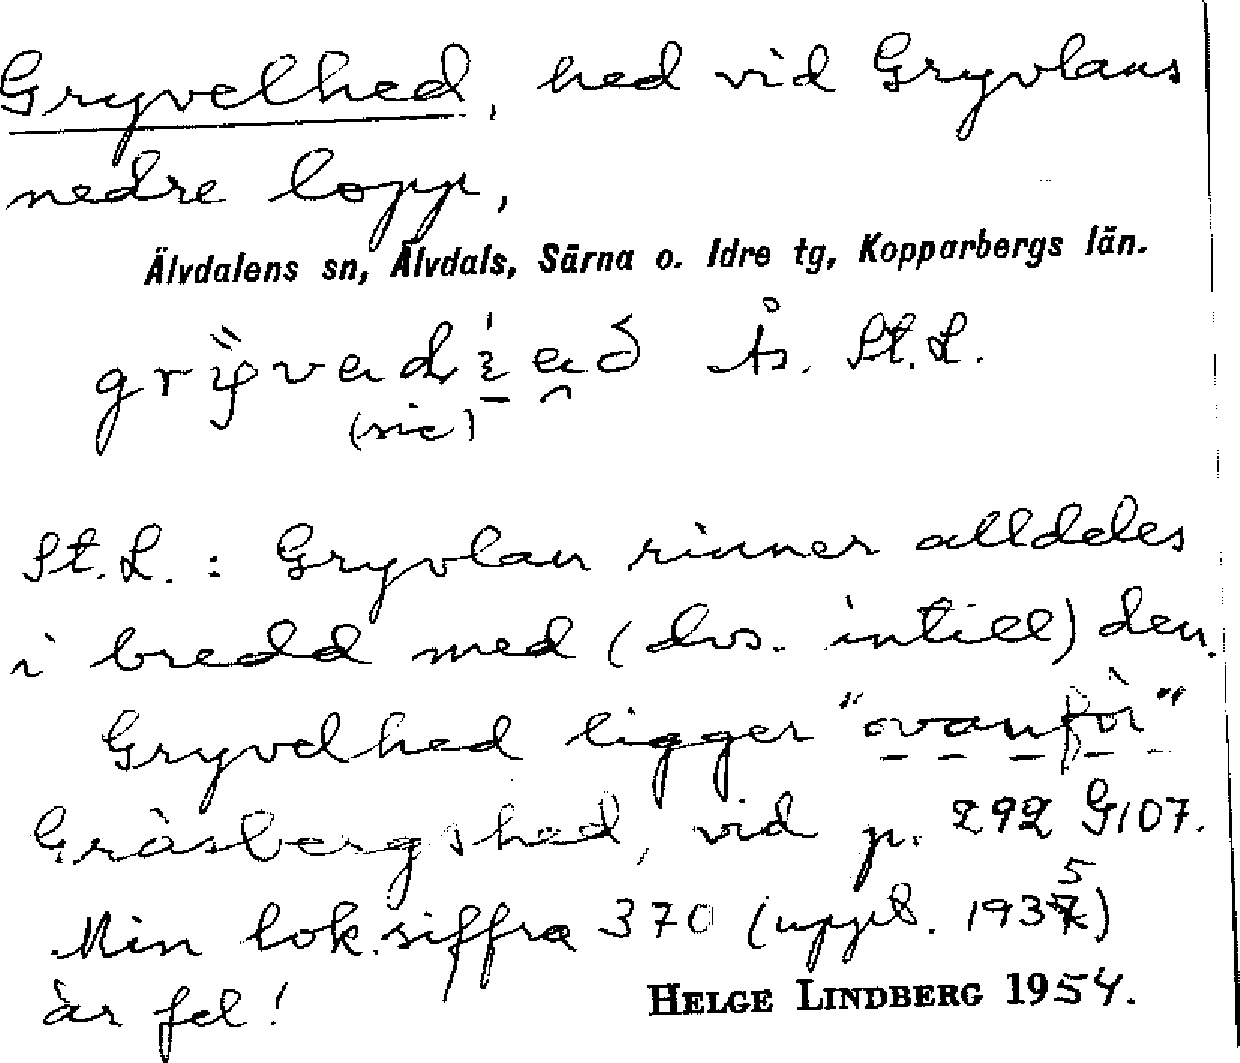 Gryvelhed, hed vid Gryvlans
nedre lopp,
Älvdalens sn, Älvdals, Särna o. Idre tg, Kopparbergs län.
Ås. St.L.
(sic)
St.L. : Gryvlan rinner alldeles
i bredd med (dvs. intill) den.
Gryvelhed ligger "ovanför"
Gråsbergshed, vid p. 292 G107.
Min lok.siffra 370 (uppt. 1935)
är fel!
HELGE LINDBERG 1954.